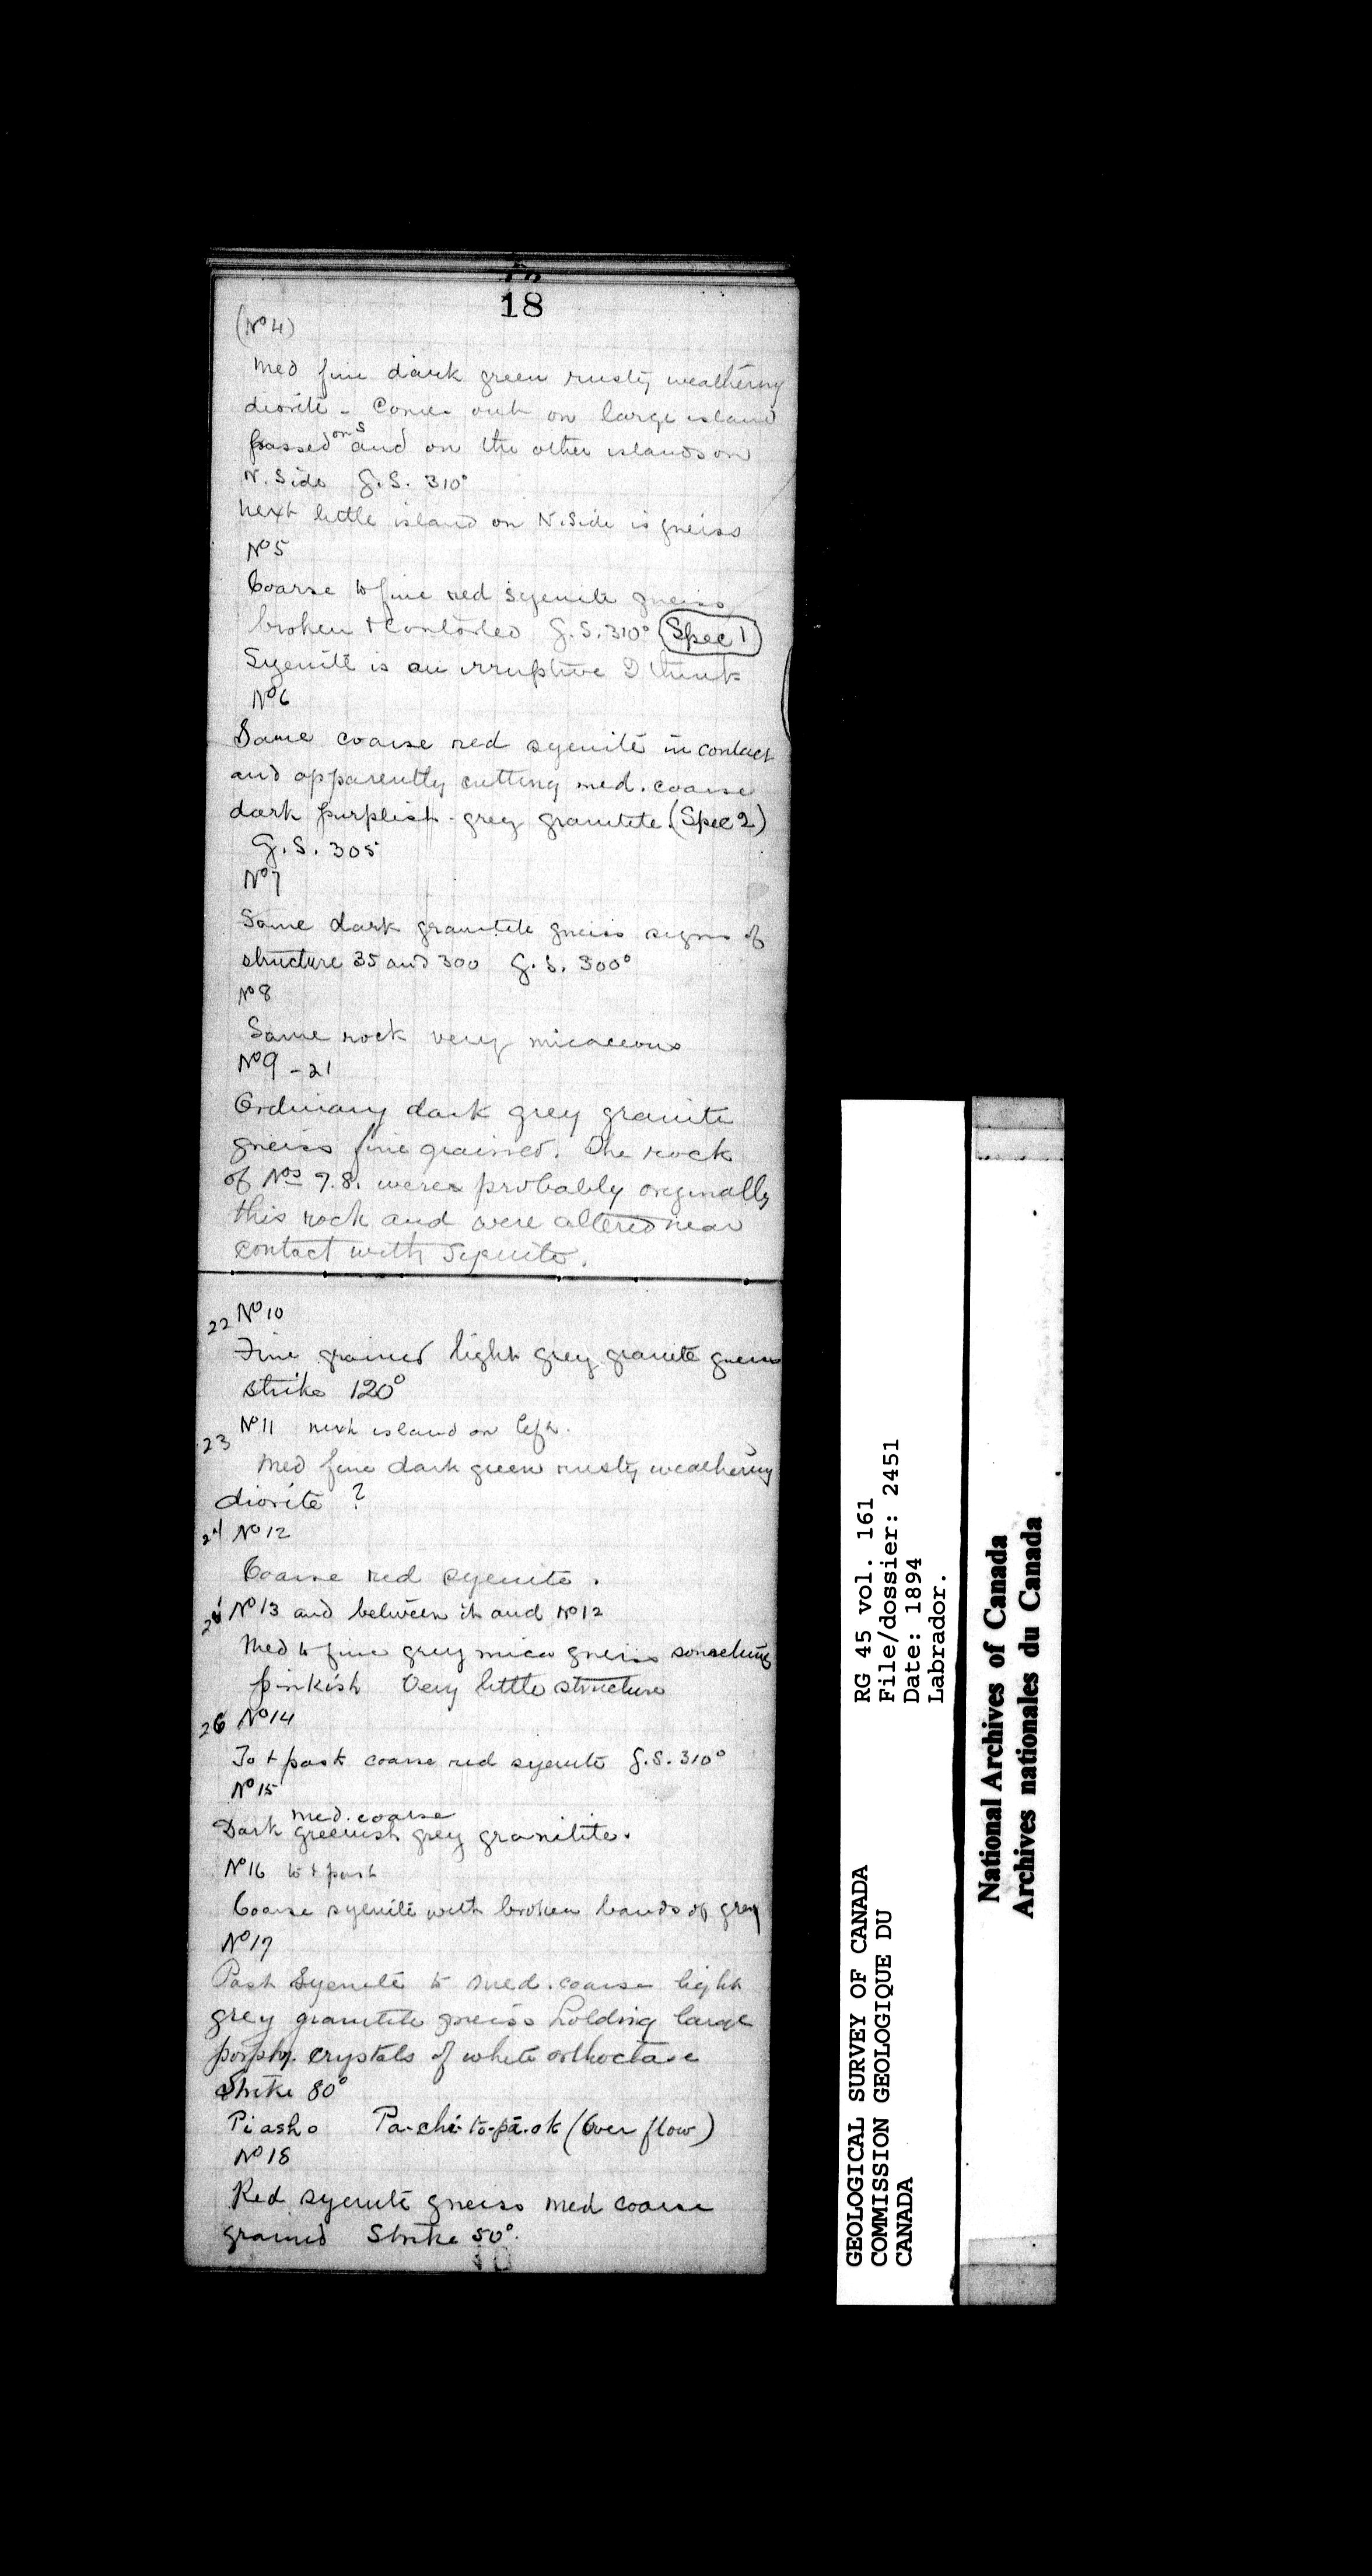 18
(No 4)
Med fine dark green rusty weathering
diorite - Comes out on large island
passed on S and on the other islands on
N. Side G.S. 310°
Next little island on N. Side is gneiss
No 5
Coarse to fine red syenite gneiss
broken & contorted G.S. 310° (Spec 1)
Syenite is an irruptive I think
No 6
Same coarse red syenite in contact
and apparently cutting med. coarse
dark purplish-grey granitite. (Spec 2)
G.S. 305
No 7
Same dark granitite gneiss signs of
structure 35 and 300 G.S. 300°
No 8
Same rock very micaceous
No 9 - 21
Ordinary dark grey granite
gneiss fine grained. The rock
of Nos 7.8. were probably originally
this rock and were altered near
contact with Syenite.
22 No 10
Fine grained light grey granite gneiss
strike 120°
No 11 next island on left.
23
Med fine dark green rusty weathering
diorite ?
24 No 12
Coarse red syenite.
No 13 and between it and No 12
Med to fine grey mica gneiss sometimes
pinkish Very little structure
26 No 14
To & past coarse red syenite G.S. 310°
No 15
med. coarse
Dark greenish grey granitite.
No 16 to & past
Coarse syenite with broken bands of grey
No 17
Past Syenite to med. coarse light
grey granitite gneiss holding large
porphy. crystals of white orthoclase
Strike 80°
Piasho Pa-chi-to-pa-ok (Over flow)
No 18
Red syenite gneiss med coarse
grained Strike 50°.
RG 45 vol. 161
File/dossier: 2451
Date: 1894
Labrador.
GEOLOGICAL SURVEY OF CANADA
COMMISSION GEOLOGIQUE DU
CANADA
National Archives of Canada
Archives nationales du Canada